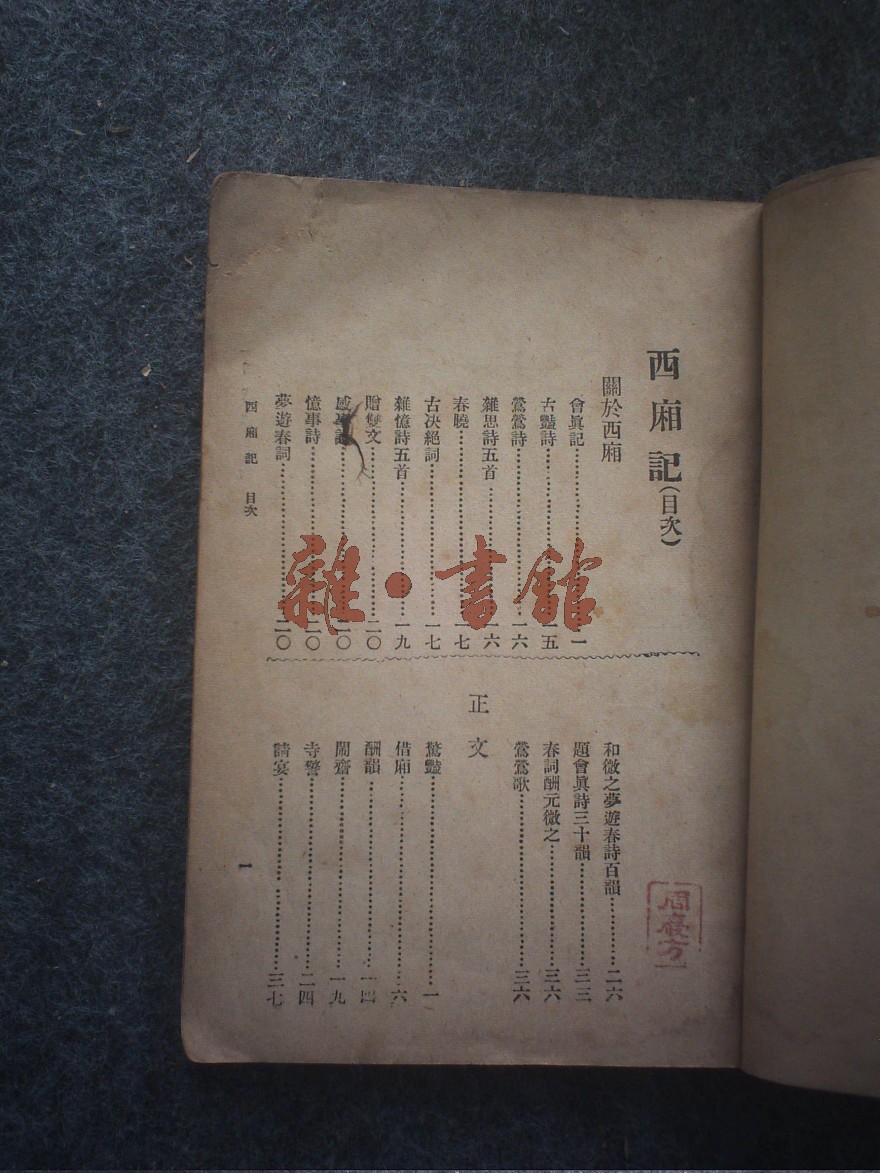 西廂記(目次)
關於西廂
會眞記⋯⋯一
古豔詩⋯⋯一五
鶯鶯詩⋯⋯一六
雜思詩五首⋯⋯一六
春曉⋯⋯一七
古决絕詞⋯⋯一七
雜憶詩五首⋯⋯一九
贈雙文⋯⋯二〇
感事詩⋯⋯二〇
憶事詩⋯⋯二〇
夢遊春詞⋯⋯二〇
和微之夢遊春詩百韻⋯⋯二六
題會眞詩三十韻⋯⋯三三
春詞酬元微之⋯⋯三六
鶯鶯歌⋯⋯三六
正文
驚豔⋯⋯一
借廂⋯⋯六
酬韻⋯⋯一四
鬧齋⋯⋯一九
寺警⋯⋯二四
請宴⋯⋯三七
西廂記 目次
一
雜·書館